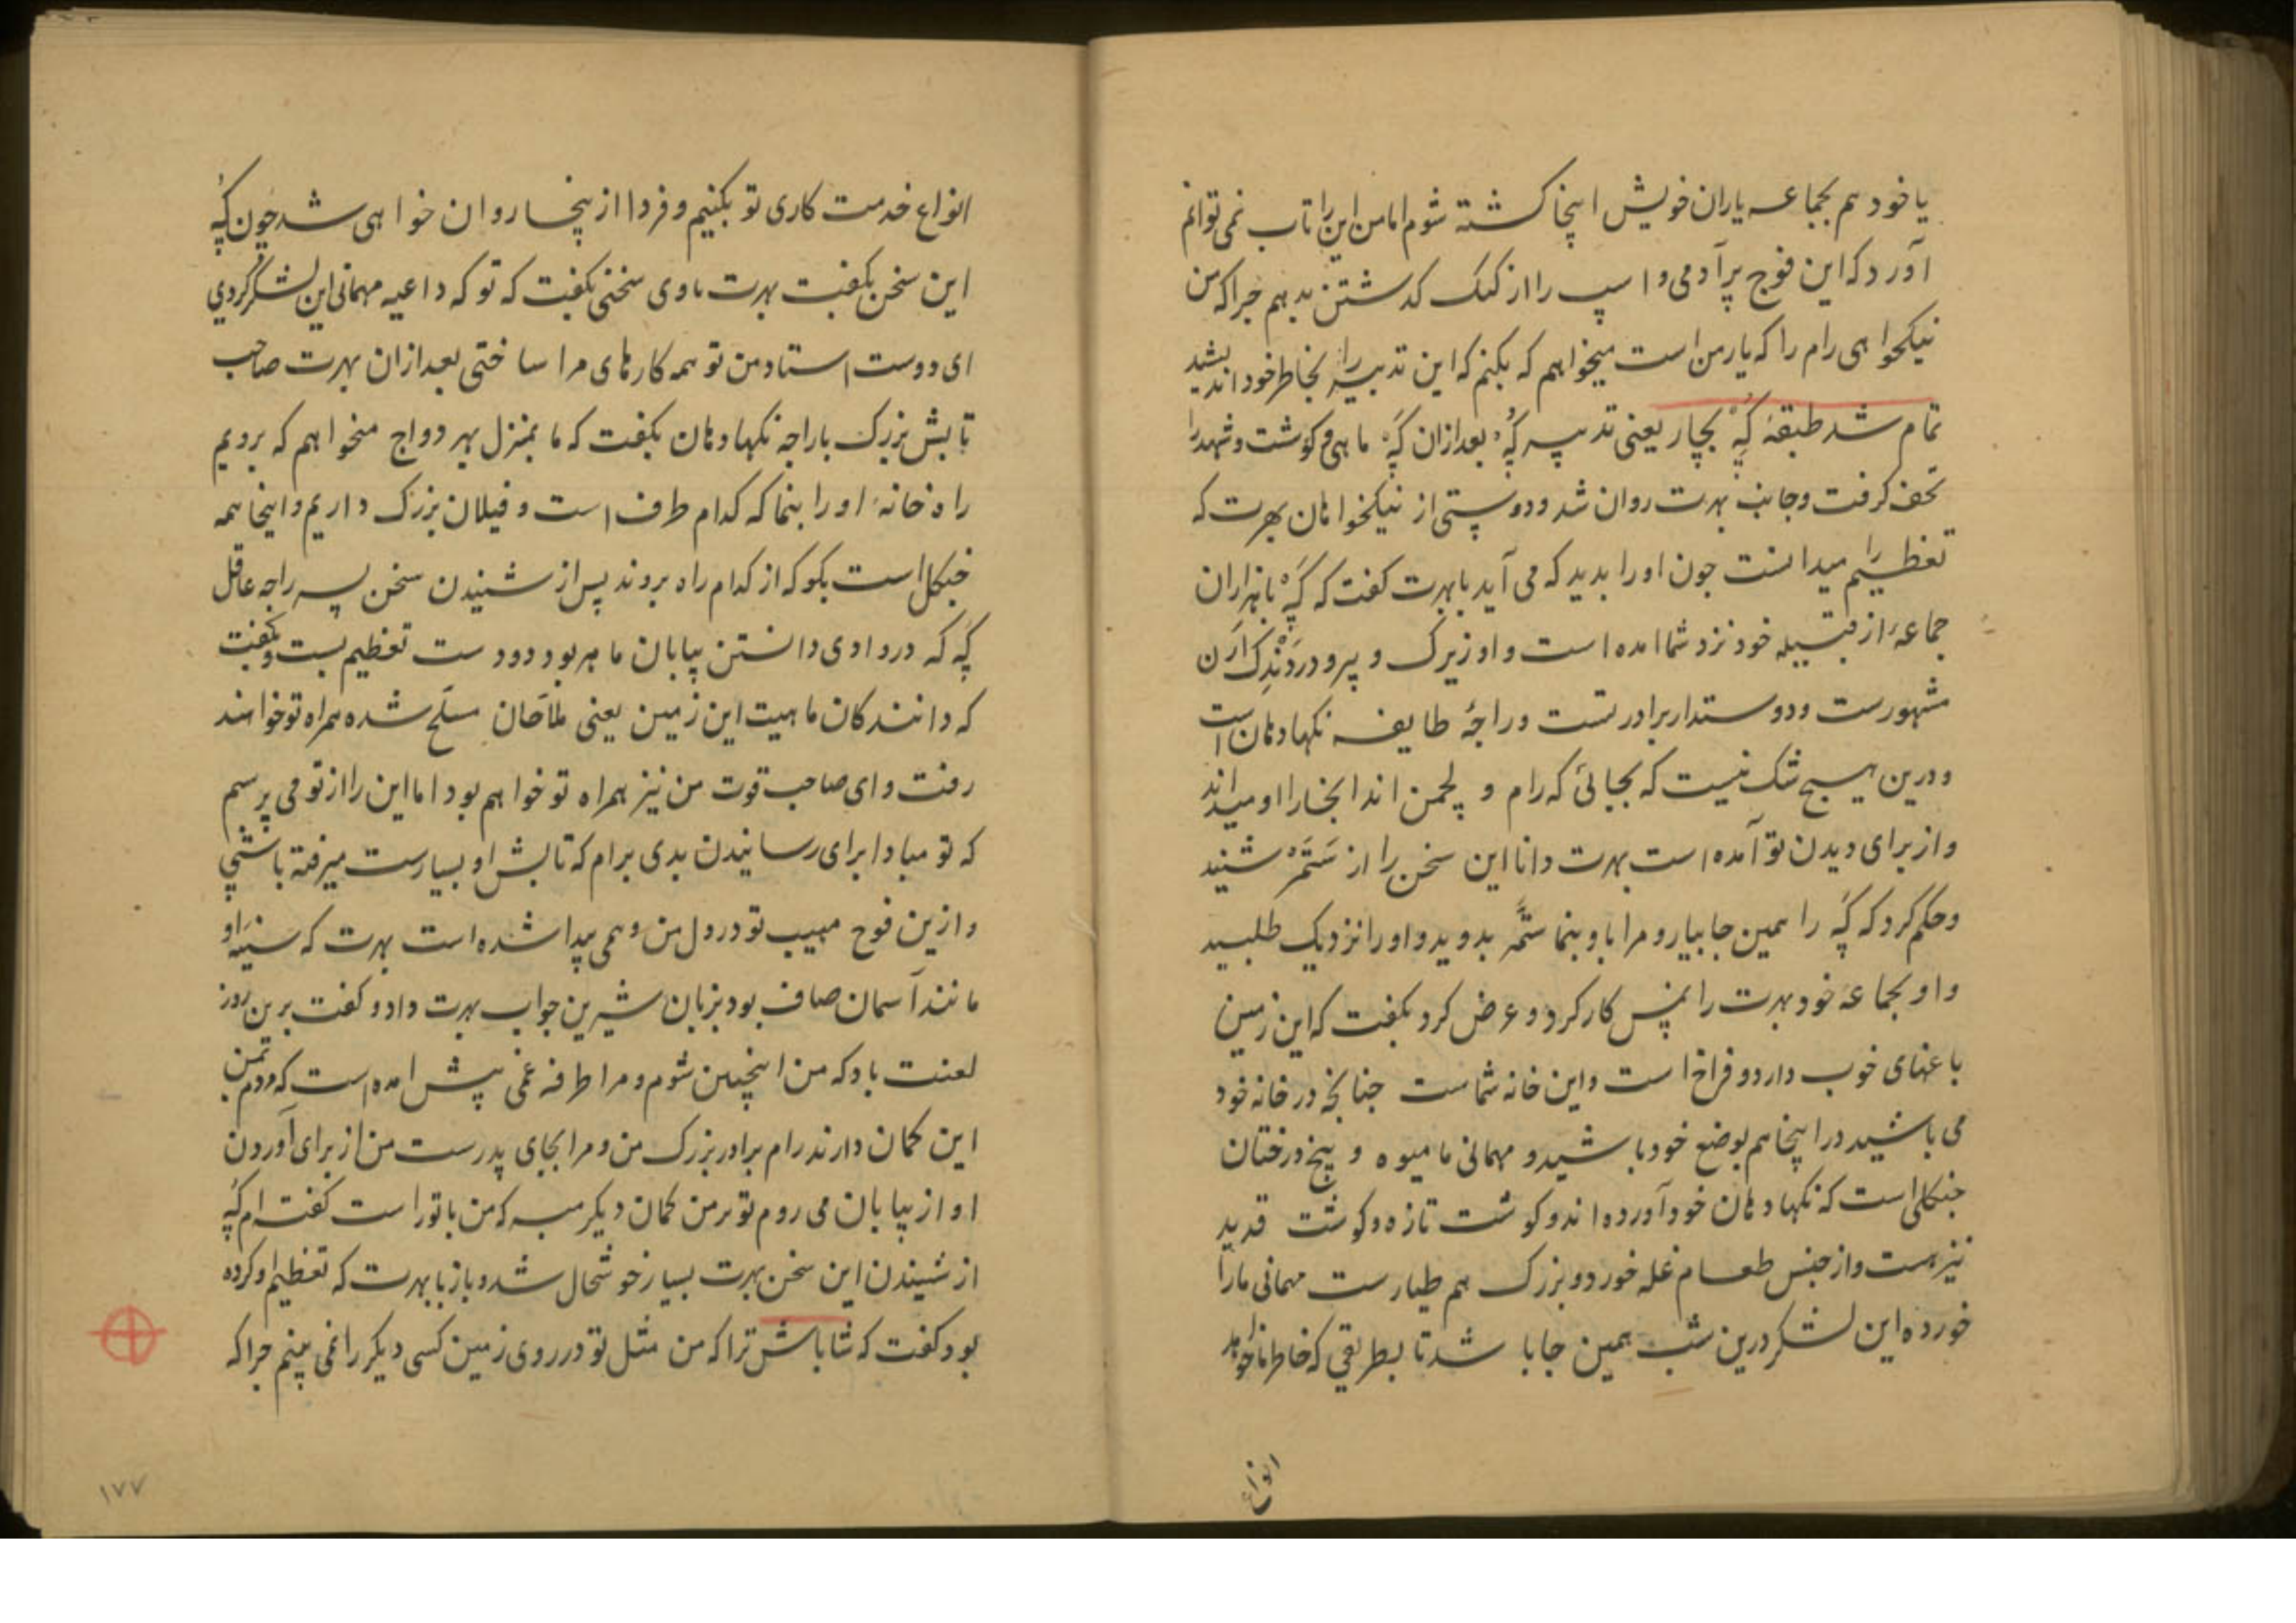 یا خود هم بجماعه یاران خویش اینجا کشته شوم اما من این را تاب نمی توانم
آورد که این فوج پر آدمی و اسپ را از کنک کدشتن بدهم جرا که من
نیکخواهی رام را که یار من است میخواهم که بکنم که این تدبیر را بخاطر خود اندیشید
تمام شد طبقهٔ کُپه بچار یعنی تدبیر کُپه بعد ازان کُپه ماهی و کوشت و شهد را
تحف کرفت و جانب بهرت روان شد و دوستی از نیکخواهان بهرت که
تعظیم را میدانست جون او را بدید که می آید با بهرت کفت که کُپه با هزاران
جماعهٔ از قبیله خود نزد شما امده است و او زیرک و پیر و در دَنْدَک اَرَن
مشهورست و دوستدار برادر تست و راجهٔ طایفه نکهادهان است
و درین هیسج شک نیست که بجائی که رام و لچمن اند انجا را او میداند
و از برای دیدن تو آمده است بهرت دانا این سخن را از سُتَمَرْ شنید
و حکم کرد که کُپه را همین جا بیار و مرا باو بنما ستمر بدوید و او را نزدیک طلبید
و او بجماعه خود بهرت را نمس کار کرد و عرض کرد بکفت که این زمین
باغهای خوب دارد و فراخ است و این خانه شماست جنانجه در خانه خود
می باشید در اینجا هم بوضع خود باشید و مهمانی ما میوه و بیخ درختان
جنکلی است که نکهادهان خود آورده اند و کوشت تازه و کوشت قدید
نیز هست و از جنس طعام غله خورد و بزرک هم طیارست مهمانی ما را
خورده این لشکر درین شب همین جا باشد تا بطریقی که خاطر ما خواهد
انواع
انواع خدمت کاری تو بکنیم و فردا از ینجا روان خواهی شد جون کُپه
این سخن بکفت بهرت باوی سخنی بکفت که تو که داعیه مهمانی این لشکر کردی
ای دوست استاد من تو همه کارهای مرا ساختی بعد ازان بهرت صاحب
تابش بزرک با راجه نکهادهان بکفت که ما بمنزل بهردواج میخواهم که برویم
راه خانهٔ او را بنما که کدام طرف است و فیلان بزرک داریم و اینجا همه
جنکل است بکو که از کدام راه بروند پس از شنیدن سخن پسر راجه عاقل
کُپه که در وادی دانستن بیابان ماهر بود دودست تعظیم بست و بکفت
که دانندکان ماهیت این زمین یعنی ملاحان مسلح شده همراه تو خواهند
رفت و ای صاحب قوت من نیز همراه تو خواهم بود اما این را از تو می پرسم
که تو مبادا برای رسانیدن بدی برام که تابش او بسیارست میرفته باشی
و ازین فوج مهیب تو در دل من وهمی پیدا شده است بهرت که سینهٔ او
مانند آسمان صاف بود بزبان شیرین جواب بهرت داد و کفت برین روز
لعنت باد که من اینچنین شوم و مرا طرفه غمی پیش امده است که مردم بمن
این کمان دارند رام برادر بزرک من و مرا بجای پدرست من از برای آوردن
او از بیابان می روم تو بر من کمان دیکر مبر که من با تو راست کفته ام کُپه
از شنیدن این سخن بهرت بسیار خوشحال شد و باز با بهرت که تعظیم او کرده
بود کفت که شاباش ترا که من مثل تو در روی زمین کسی دیکر را نمی بینم جرا که
۱۷۷